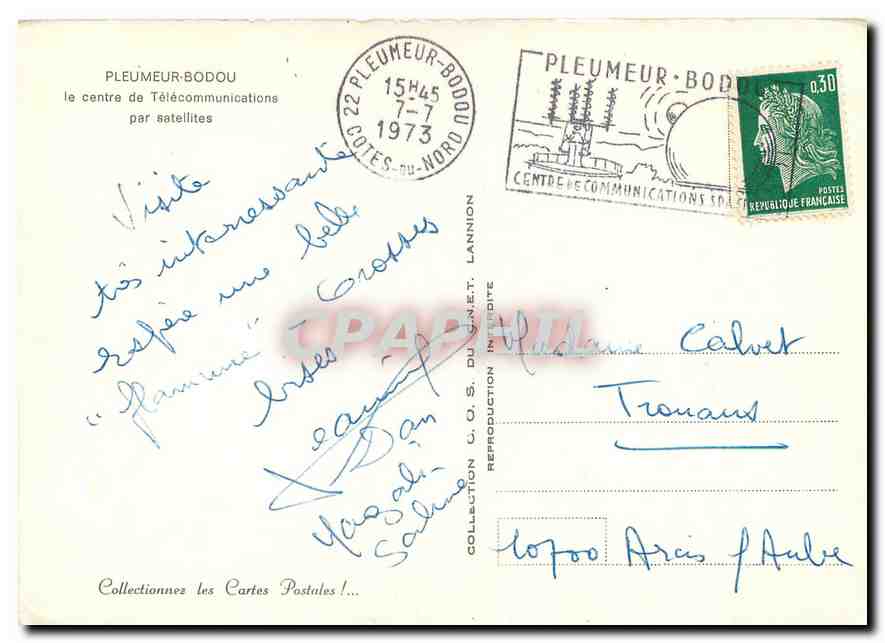 PLEUMEUR-BODOU
le centre de Télécommunications
par satellites
22 PLEUMEUR-BODOU
15H45
7-7
1973
COTES-DU-NORD
PLEUMEUR-BODOU
CENTRE DE COMMUNICATIONS SPA
0,30
POSTES
REPUBLIQUE FRANÇAISE
Visite
très interressante
espère une belle
"flamme" - Grosses
bises
Jeannine
Dan
Magali
Sabine
COLLECTION C.O.S. DU C.N.E.T. LANNION
REPRODUCTION INTERDITE
Madame Calvet
Trouans
10700 Arcis s/Aube
Collectionnez les Cartes Postales !...
CPAPHIL